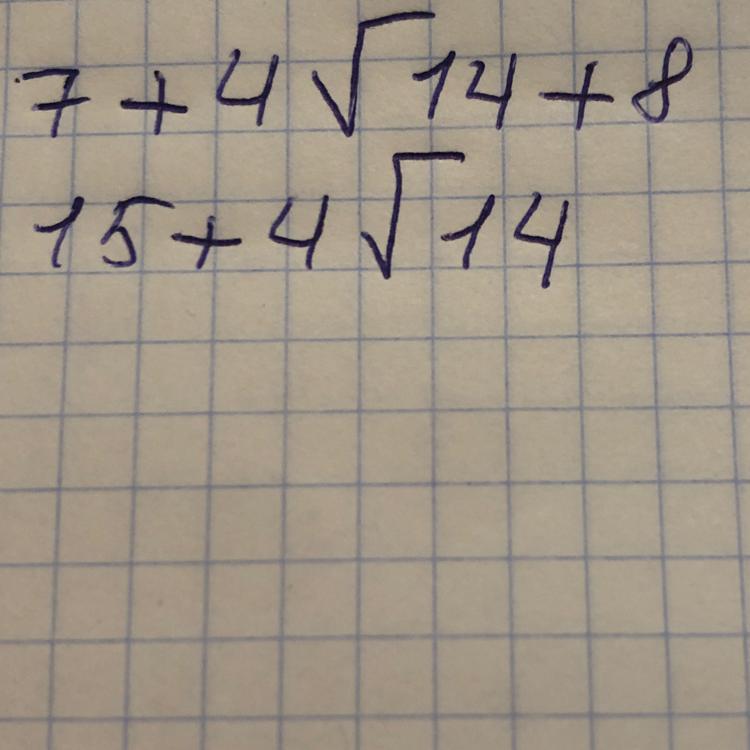 7 + 4 √14 + 8
15 + 4 √14